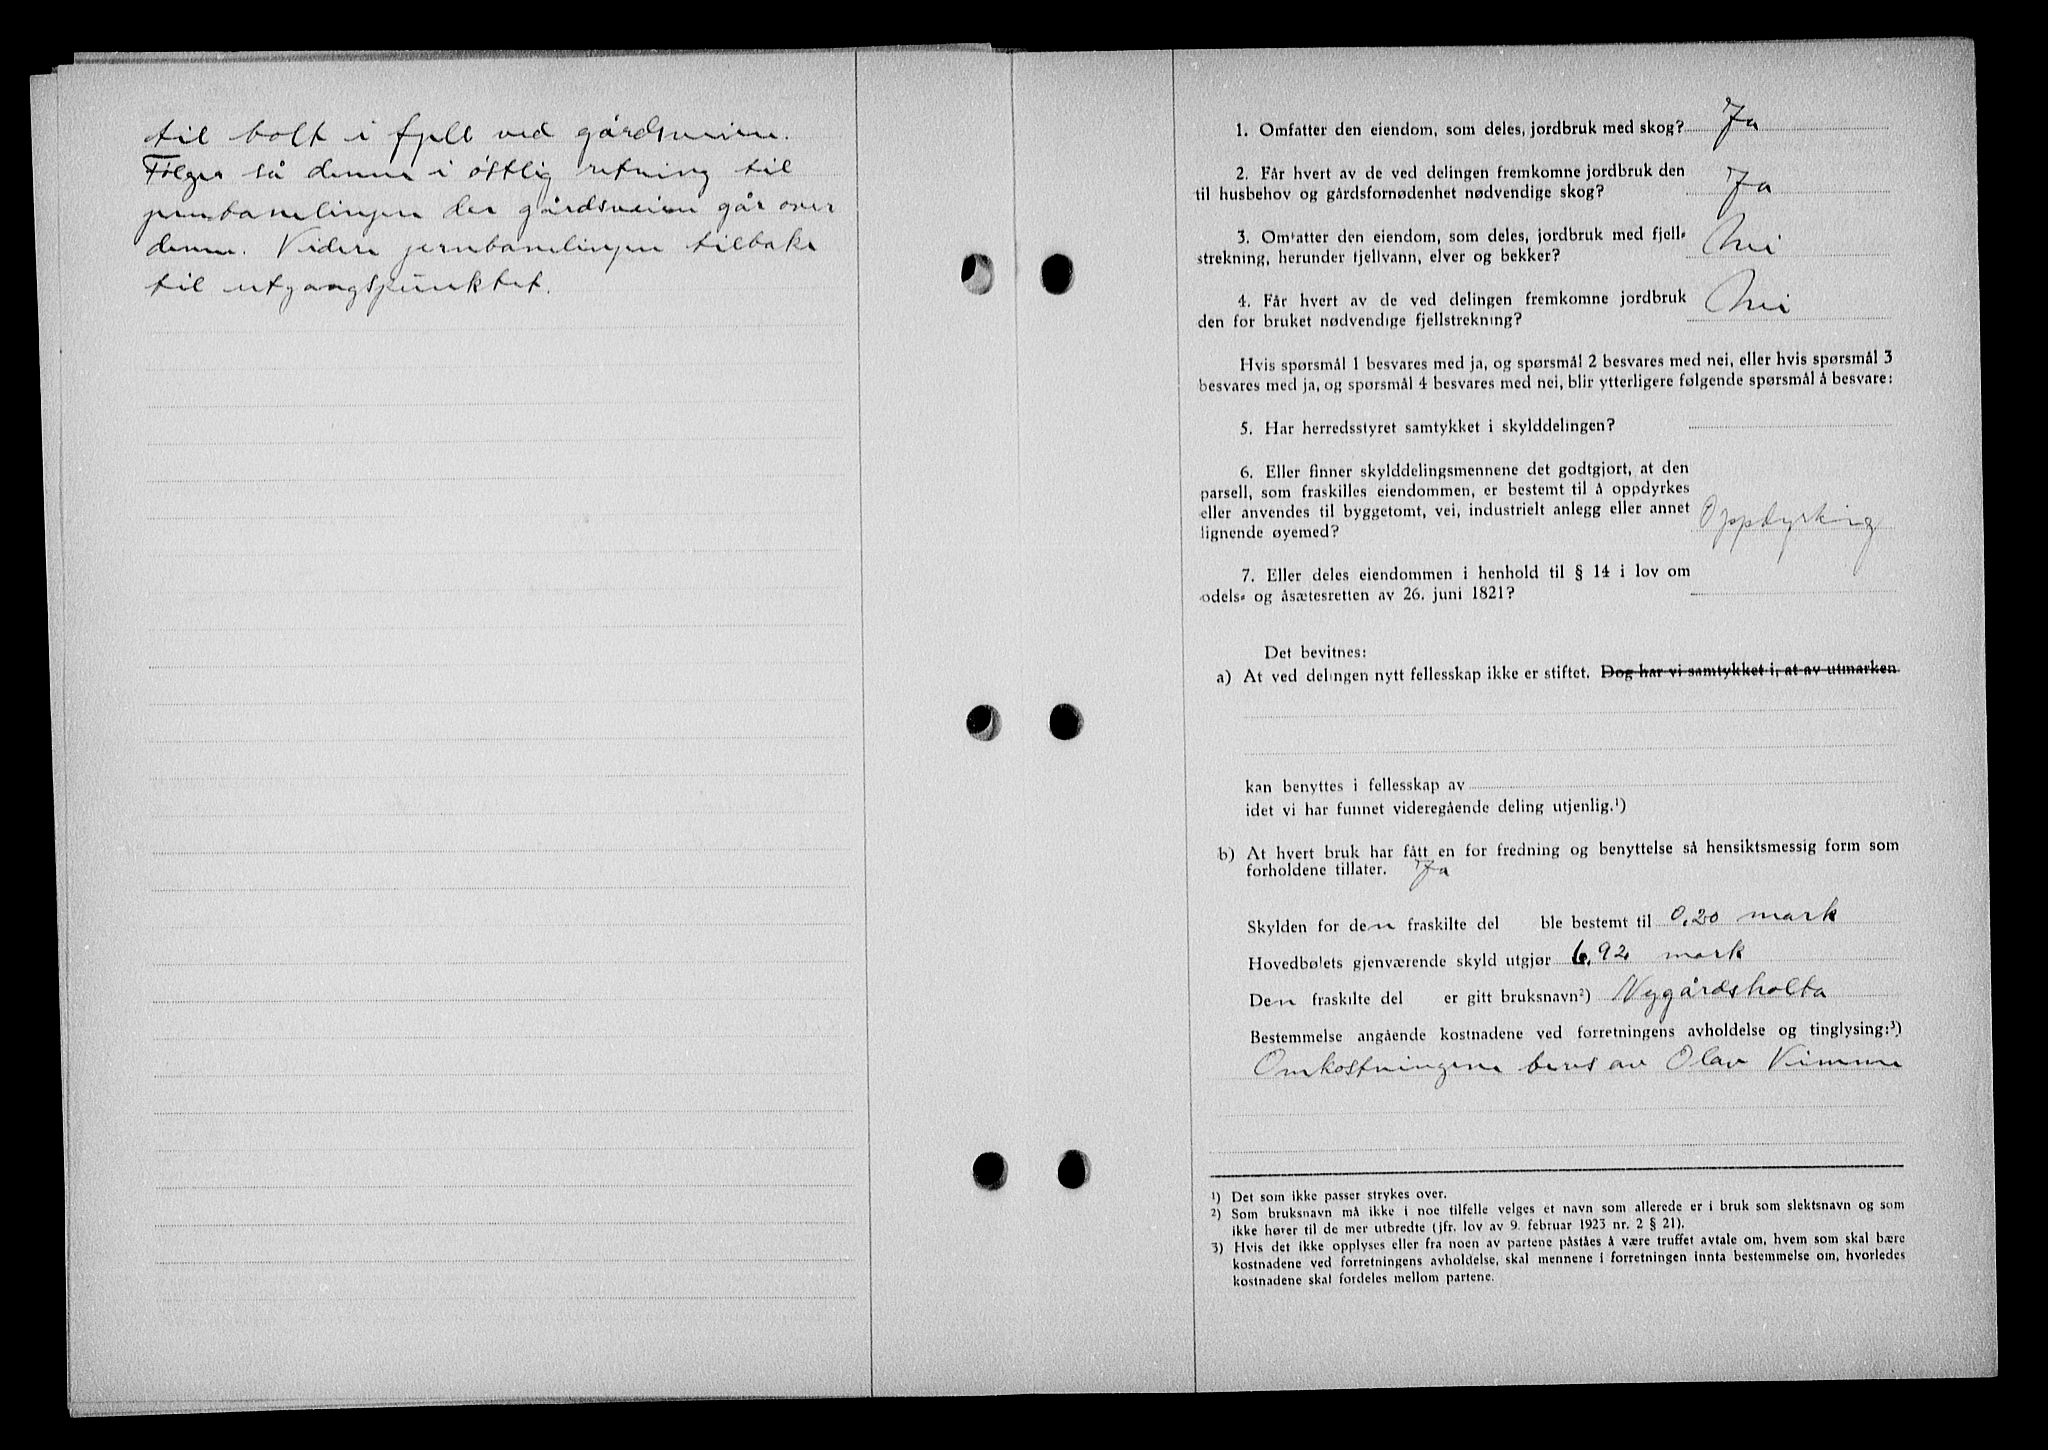 til bolt i fjell ved gårdsveien.
Følger så denne i østlig retning til
jernbanelinjen der gårdsveien går over
denne. Videre jernbanelinjen tilbake
til utgangspunktet.
1. Omfatter den eiendom, som deles, jordbruk med skog? Ja
2. Får hvert av de ved delingen fremkomne jordbruk den
til husbehov og gårdsfornødenhet nødvendige skog? Ja
3. Omfatter den eiendom, som deles, jordbruk med fjell-
strekning, herunder fjellvann, elver og bekker? Nei
4. Får hvert av de ved delingen fremkomne jordbruk
den for bruket nødvendige fjellstrekning? Nei
Hvis spørsmål 1 besvares med ja, og spørsmål 2 besvares med nei, eller hvis spørsmål 3
besvares med ja, og spørsmål 4 besvares med nei, blir ytterligere følgende spørsmål å besvare:
5. Har herredsstyret samtykket i skylddelingen?
6. Eller finner skylddelingsmennene det godtgjort, at den
parsell, som fraskilles eiendommen, er bestemt til å oppdyrkes
eller anvendes til byggetomt, vei, industrielt anlegg eller annet
lignende øyemed? Oppdyrking
7. Eller deles eiendommen i henhold til § 14 i lov om
odels- og åsætesretten av 26. juni 1821?
Det bevitnes:
a) At ved delingen nytt fellesskap ikke er stiftet. Dog har vi samtykket i, at av utmarken
kan benyttes i fellesskap av
idet vi har funnet videregående deling utjenlig.¹)
b) At hvert bruk har fått en for fredning og benyttelse så hensiktsmessig form som
forholdene tillater. Ja
Skylden for den fraskilte del ble bestemt til 0,20 mark
Hovedbølets gjenværende skyld utgjør 6,92 mark
Den fraskilte del er gitt bruksnavn²) Nygårdsholta
Bestemmelse angående kostnadene ved forretningens avholdelse og tinglysing:³)
Omkostningene beres av Olav Vimme
¹) Det som ikke passer strykes over.
²) Som bruksnavn må ikke i noe tilfelle velges et navn som allerede er i bruk som slektsnavn og som
ikke hører til de mer utbredte (jfr. lov av 9. februar 1923 nr. 2 § 21).
3) Hvis det ikke opplyses eller fra noen av partene påståes å være truffet avtale om, hvem som skal bære
kostnadene ved forretningens avholdelse, skal mennene i forretningen innta bestemmelse om, hvorledes
kostnadene skal fordeles mellom partene.